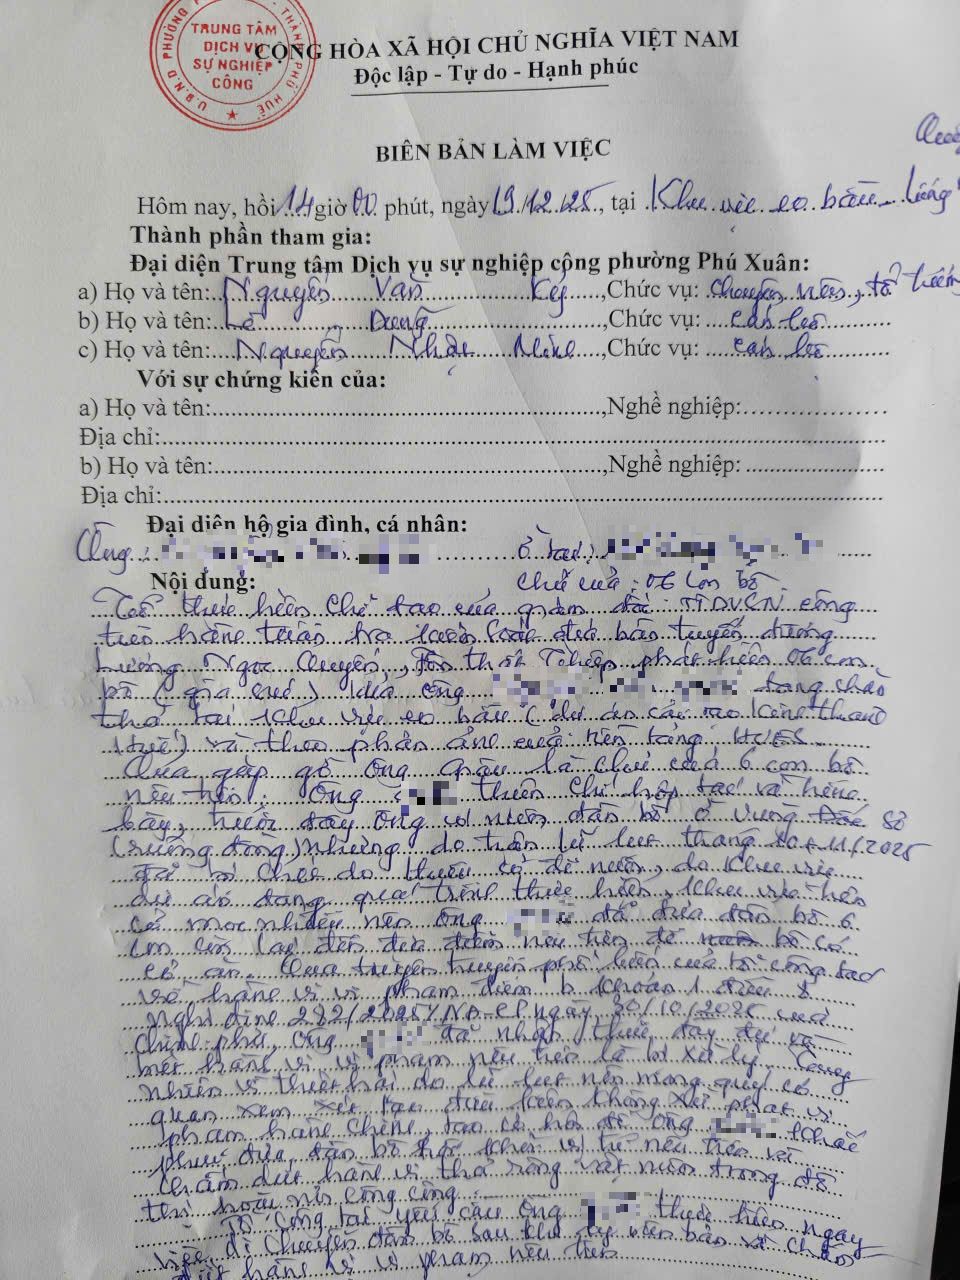 TRUNG TÂM
DỊCH VỤ
SỰ NGHIỆP
CÔNG
CỘNG HÒA XÃ HỘI CHỦ NGHĨA VIỆT NAM
Độc lập - Tự do - Hạnh phúc
BIÊN BẢN LÀM VIỆC
Hôm nay, hồi 14 giờ 00 phút, ngày 19/12/25, tại Khu vực eo bầu
Thành phần tham gia:
Đại diện Trung tâm Dịch vụ sự nghiệp công phường Phú Xuân:
a) Họ và tên: Nguyễn Văn Kỷ, Chức vụ: chuyên viên, tổ trưởng
b) Họ và tên: Lê Dung, Chức vụ: cán bộ
c) Họ và tên: Nguyễn Nhật Minh, Chức vụ: cán bộ
Với sự chứng kiến của:
a) Họ và tên:, Nghề nghiệp:
Địa chỉ:
b) Họ và tên:, Nghề nghiệp:
Địa chỉ:
Đại diện hộ gia đình, cá nhân:
Ông: ở tại:
Nội dung: chủ của: 06 con bò
thực hiện chỉ đạo của giám đốc TTDVSN công
tiến hành tuần tra trên địa bàn tuyến đường
Lương Ngọc Quyến, Tôn Thất Thiệp phát hiện 06 con
bò (gia súc) của ông đang chăn
thả tại khu vực eo bầu (dự án cải tạo Kinh thành
Huế) và theo phản ánh của nền tảng HUES.
Qua gặp gỡ ông là chủ của 6 con bò
nêu trên. Ông thiện chí hợp tác và trình
bày, trước đây ông có nuôi đàn bò ở vùng
(ruộng đồng) nhưng do trận lũ lụt tháng 10+11/2025
đã bị chết do thiếu cỏ để nuôi, do khu vực
dự án đang quá trình thực hiện, khu vực trên
cỏ mọc nhiều nên ông đã đưa đàn bò 6
con còn lại đến địa điểm nêu trên để bò có
cỏ ăn. Qua tuyên truyền phổ biến của tổ công tác
về hành vi vi phạm điểm b khoản 1 điều 8
Nghị định 282/2025/NĐ-CP ngày 30/10/2025 của
Chính phủ, ông đã nhận thức đầy đủ và
biết hành vi vi phạm nêu trên là bị xử lý. Tuy
nhiên vì thiệt hại do lũ lụt nên mong quý cơ
quan xem xét tạo điều kiện không xử phạt vi
phạm hành chính, tạo cơ hội để ông khắc
phục đưa đàn bò ra khỏi vị trí nêu trên và
chấm dứt hành vi thả rông vật nuôi trong đô
thị hoặc nơi công cộng.
Tổ công tác yêu cầu ông thực hiện ngay
việc di chuyển đàn bò sau khi ký biên bản và chấm
dứt hành vi vi phạm nêu trên